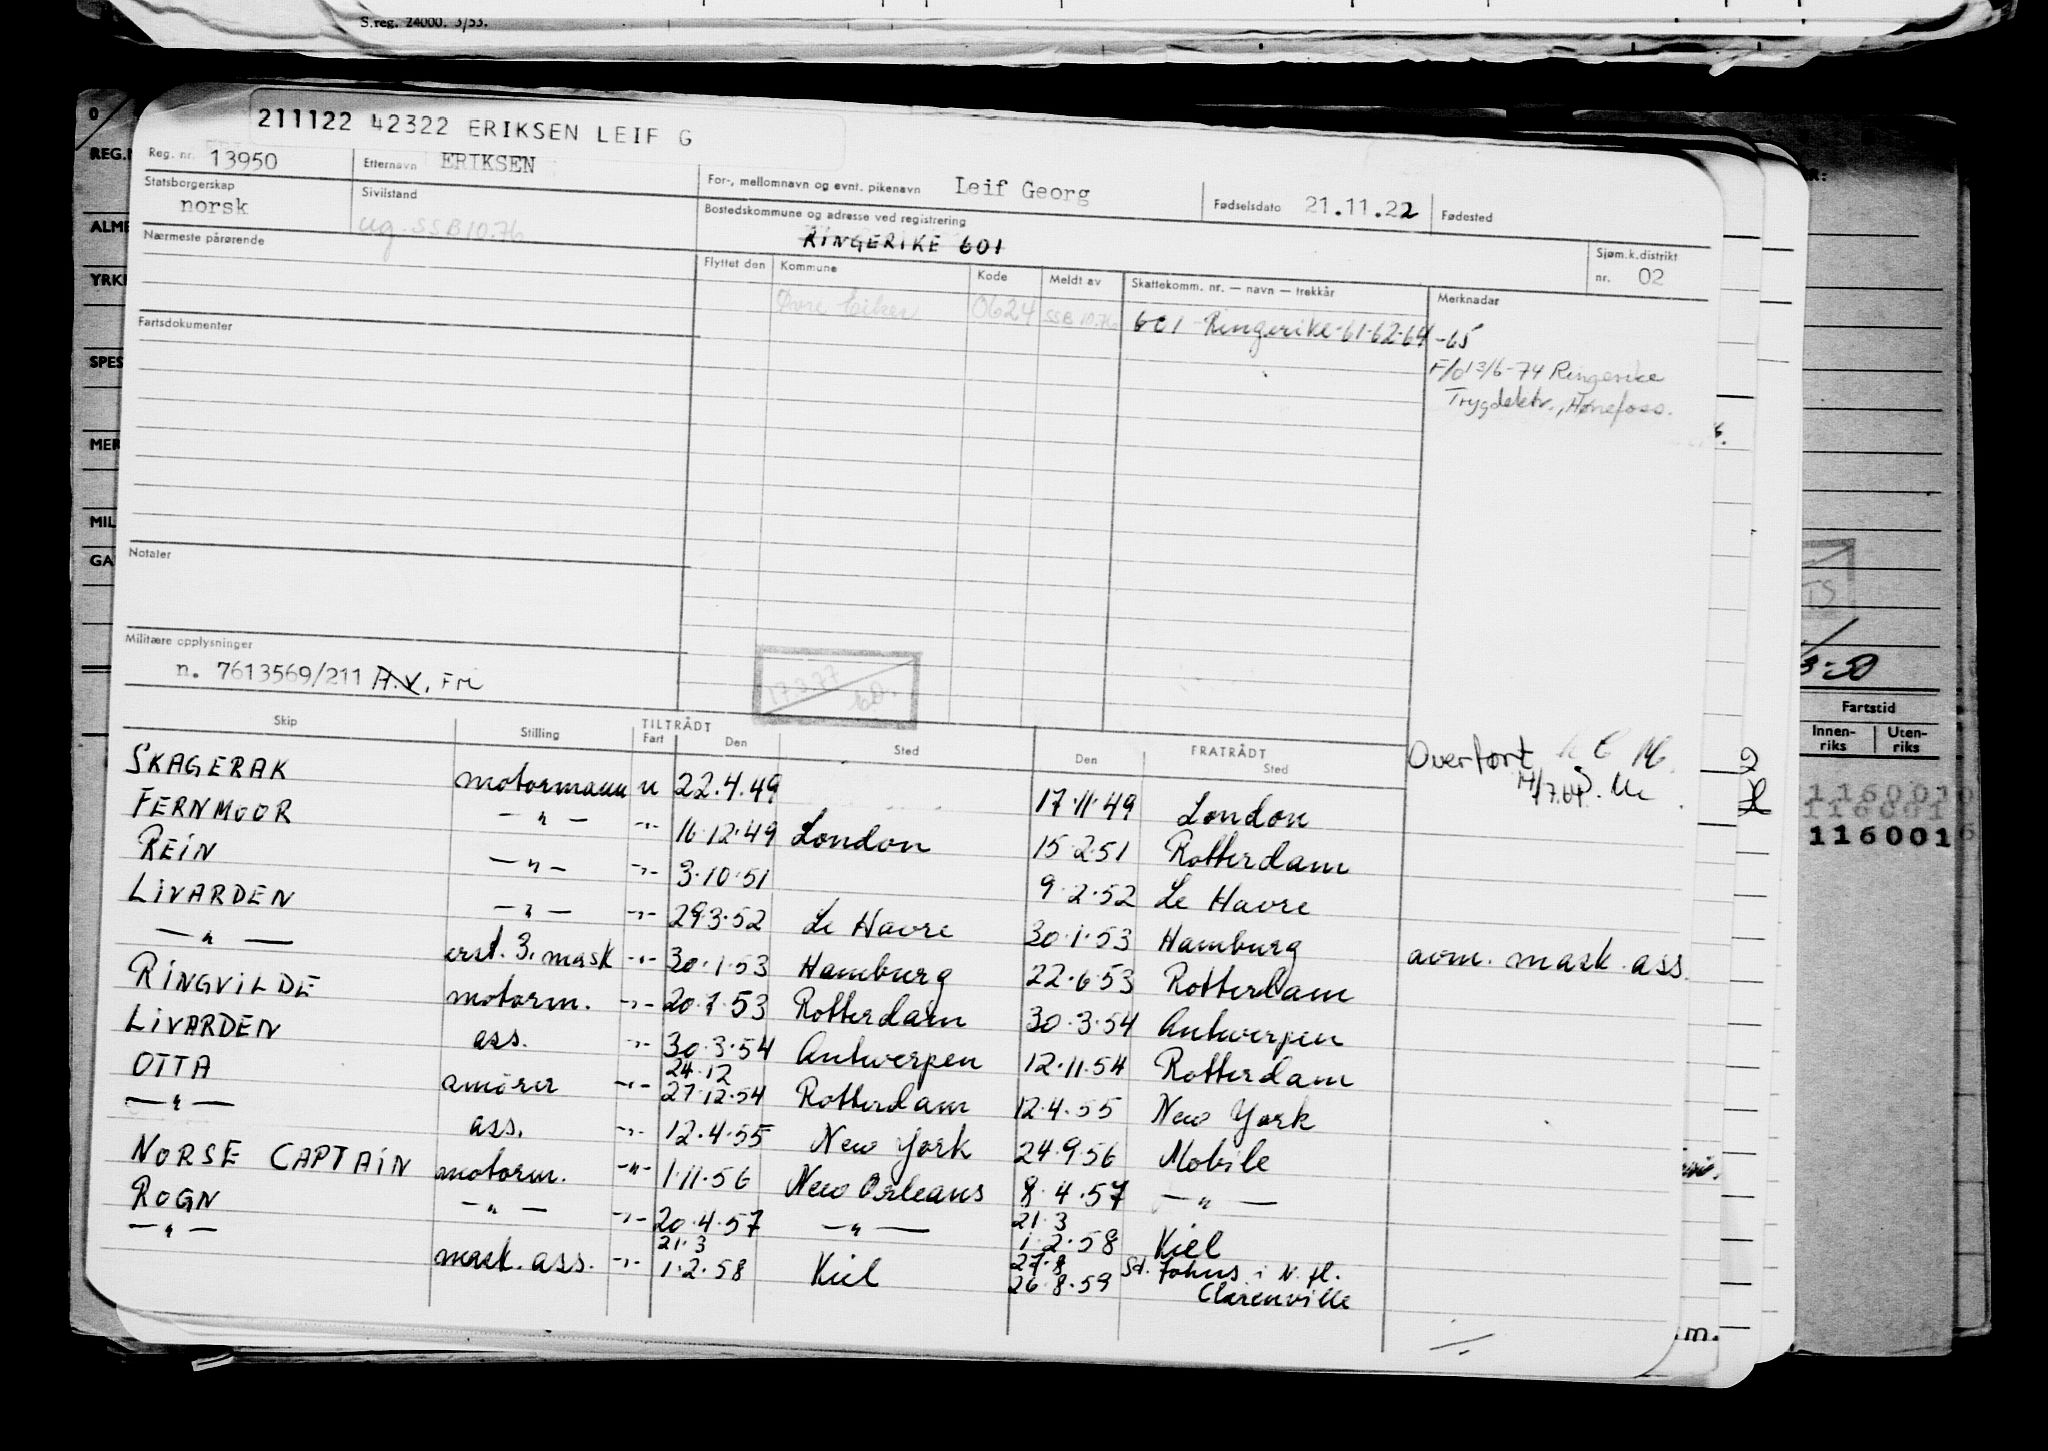 S.reg. 24000. 3/53.
211122 42322 ERIKSEN LEIF G
Reg. nr. 13950 Etternavn ERIKSEN For-, mellomnavn og evnt. pikenavn Leif Georg Fødselsdato 21.11.22 Fødested
Statsborgerskap norsk Sivilstand ug. SSB 10.76 Bostedskommune og adresse ved registrering RINGERIKE 601 Sjøm.k.distrikt nr. 02
Nærmeste pårørende Flyttet den Kommune Kode Meldt av Skattekomm. nr. — navn — trekkår Merknadar
Øvre Eiker 0624 SSB 10.76 601 Ringerike-61-62-64-65
Fartsdokumenter
F/o 13/6-74 Ringerike
Trygdektr., Hønefoss.
Notater
Militære opplysninger
n. 7613569/211 A.V. FM
17.3.77
Skip Stilling TILTRÅDT Fart Den Sted FRATRÅDT Den Sted
Overført
14/7.64.
SKAGERAK motormann u 22.4.49 17.11.49 London
FERNMOOR —"— -"- 16.12.49 London 15.2.51 Rotterdam
REIN —"— -"- 3.10.51 9.2.52 Le Havre
LIVARDEN —"— -"- 29.3.52 Le Havre 30.1.53 Hamburg
—"— erst. 3. mask -"- 30.1.53 Hamburg 22.6.53 Rotterdam avm. mask. ass.
RINGVILDE motorm. -"- 20.7.53 Rotterdam 30.3.54 Antwerpen
LIVARDEN ass. -"- 30.3.54 Antwerpen 12.11.54 Rotterdam
24.12
OTTA smører -"- 27.12.54 Rotterdam 12.4.55 New York
—"— ass. -"- 12.4.55 New York 24.9.56 Mobile
NORSE CAPTAIN motorm. -"- 1.11.56 New Orleans 8.4.57 —"—
21.3
ROGN —"— -"- 20.4.57 —"— 1.2.58 Kiel
21.3 27.8 St. Johns i N. fl.
—"— mask. ass. -"- 1.2.58 Kiel 26.8.59 Clarenville
REG.
ALM
YRK
SPES
MER
MIL
GA
3-50
Fartstid
Innenriks Utenriks
116001
m.